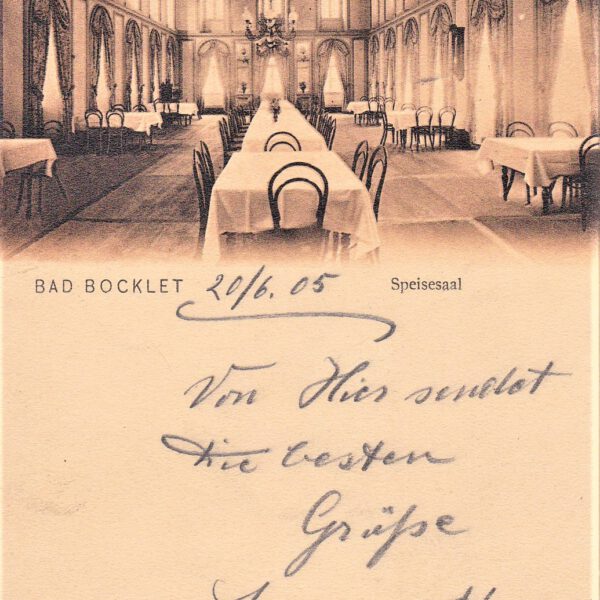 BAD BOCKLET 20/6. 05 Speisesaal
Von Hier sendet
die besten
Grüße